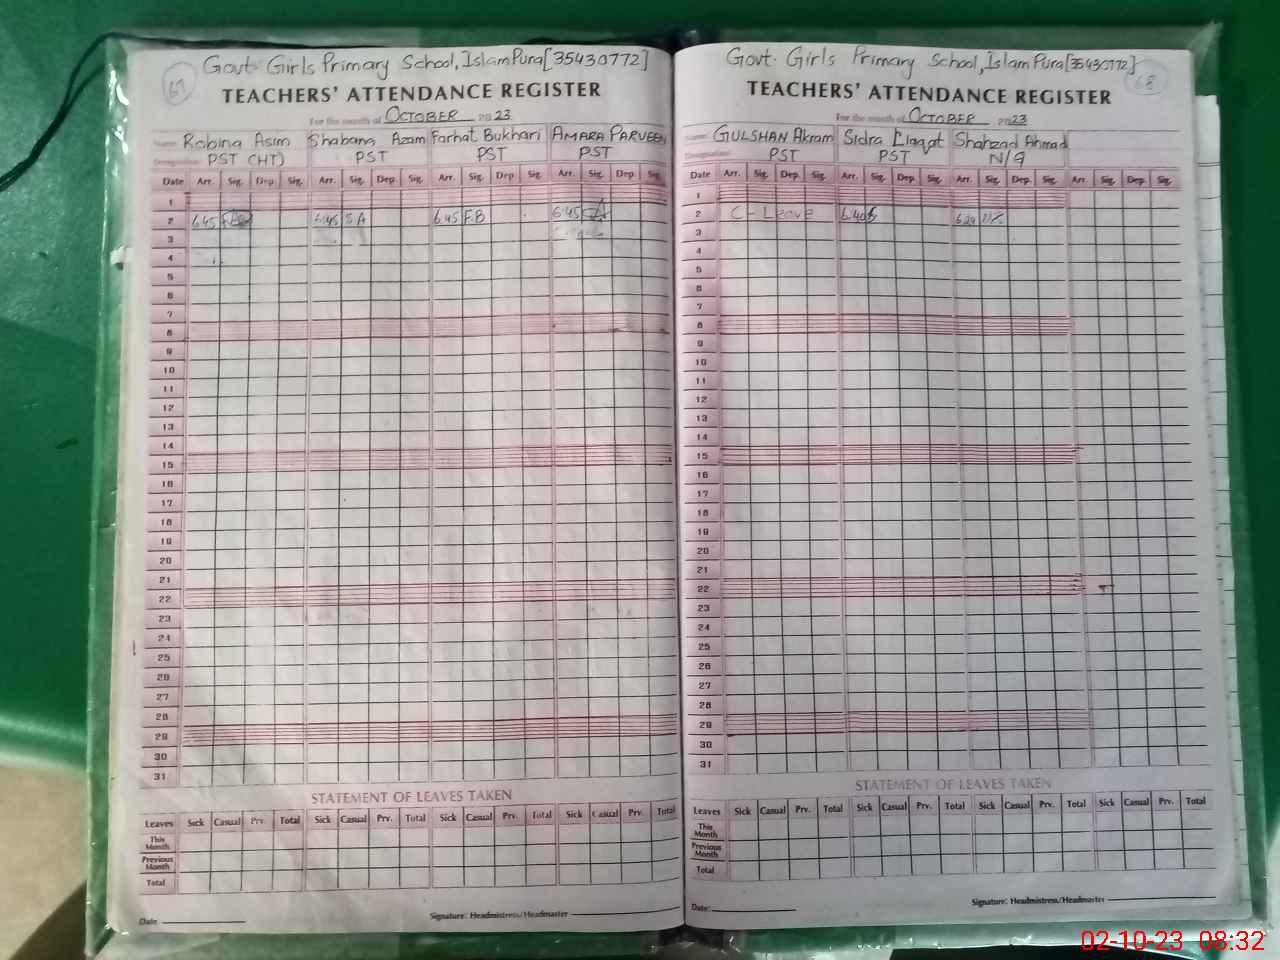 67
Govt. Girls Primary School, IslamPura[35430772]
TEACHERS' ATTENDANCE REGISTER
For the month of OCTOBER 2023
Name: Robina Asim Shabana Azam Farhat Bukhari AMARA PARVEEN
Designation: PST (HT) PST PST PST
Date Arr. Sig. Dep. Sig. Arr. Sig. Dep. Sig. Arr. Sig. Dep. Sig. Arr. Sig. Dep. Sig.
1
2 6:45 6:45 S A 6:45 F.B 6:45
3
4
5
6
7
8
9
10
11
12
13
14
15
16
17
18
19
20
21
22
23
24
25
26
27
28
29
30
31
STATEMENT OF LEAVES TAKEN
Leaves Sick Casual Prv. Total Sick Casual Prv. Total Sick Casual Prv. Total Sick Casual Prv. Total
This Month
Previous Month
Total
Date: Signature: Headmistress/Headmaster
68
Govt. Girls Primary School, IslamPura[35430772]
TEACHERS' ATTENDANCE REGISTER
For the month of OCTOBER 2023
Name: GULSHAN Akram Sidra Liaqat Shahzad Ahmad
Designation: PST PST N/Q
Date Arr. Sig. Dep. Sig. Arr. Sig. Dep. Sig. Arr. Sig. Dep. Sig. Arr. Sig. Dep. Sig.
1
2 C- Leave 6:40
3
4
5
6
7
8
9
10
11
12
13
14
15
16
17
18
19
20
21
22
23
24
25
26
27
28
29
30
31
STATEMENT OF LEAVES TAKEN
Leaves Sick Casual Prv. Total Sick Casual Prv. Total Sick Casual Prv. Total Sick Casual Prv. Total
This Month
Previous Month
Total
Date: Signature: Headmistress/Headmaster
02-10-23 08:32